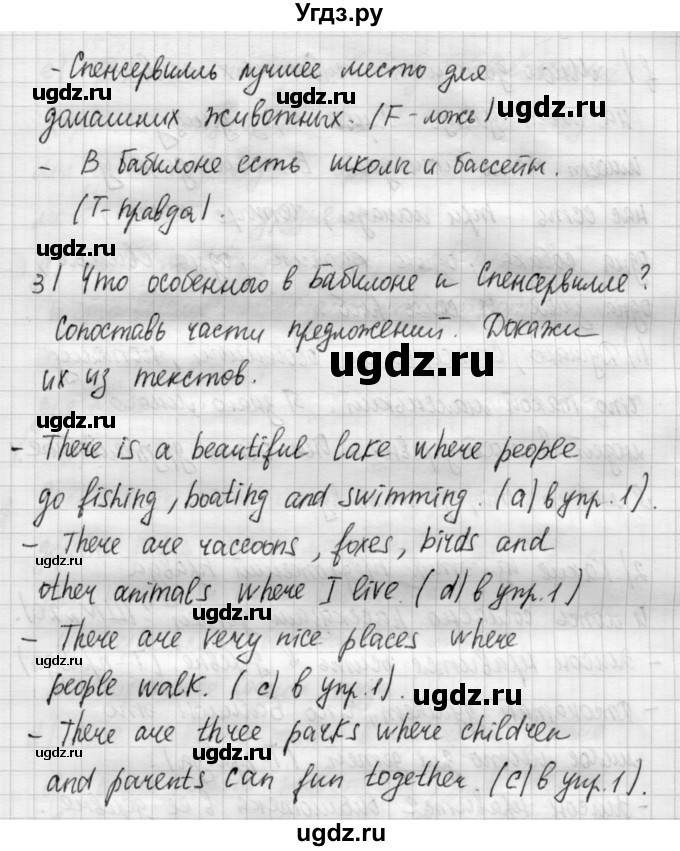 Угдз.ру
- Спенсервилль лучшее место для
ugdz.ru ugdz.ru ugdz.ru
домашних животных. (F - ложь).
- В Бабилоне есть школы и бассейны.
(Т - правда).
ugdz.ru ugdz.ru
3) Что особенного в Бабилоне и Спенсервилле?
Сопоставь части предложений. Докажи
ugdz.ru
их из текстов.
ugdz.ru
- There is a beautiful lake where people
go fishing, boating and swimming. (a) в упр. 1).
ugdz.ru ugdz.ru
- There are raccoons, foxes, birds and
other animals where I live. (d) в упр. 1)
ugdz.ru
- There are very nice places where
ugdz.ru
people walk. (c) в упр. 1).
ugdz.ru
- There are three parks where children
ugdz.ru ugdz.ru
and parents can fun together. (c) в упр. 1).
ugdz.ru